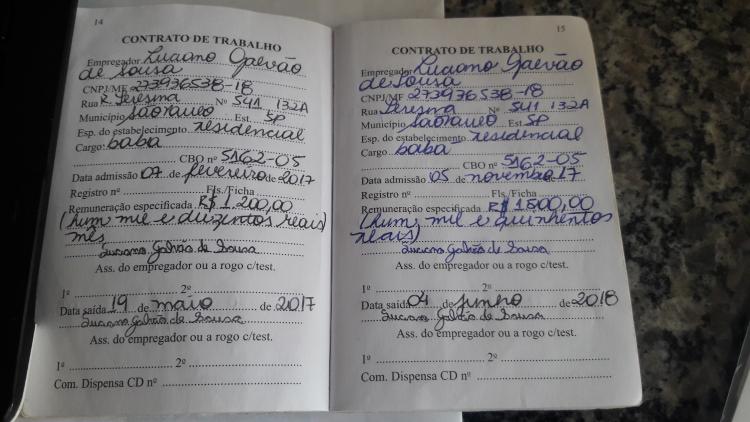 14
CONTRATO DE TRABALHO
Empregador Luciano Galvão
de Sousa
CNPJ/MF 273936538-18
Rua R. Teresina Nº 541 132A
Município São Paulo Est. SP
Esp. do estabelecimento residencial
Cargo baba
CBO nº 5162-05
Data admissão 07 de fevereiro de 2017
Registro nº Fls./Ficha
Remuneração especificada R$ 1.200,00
(hum mil e duzentos reais)
mês
Luciano Galvão de Sousa
Ass. do empregador ou a rogo c/test.
1º 2º
Data saída 19 de maio de 2017
Luciano Galvão de Sousa
Ass. do empregador ou a rogo c/test.
1º 2º
Com. Dispensa CD nº
15
CONTRATO DE TRABALHO
Empregador Luciano Galvão
de Sousa
CNPJ/MF 273936538-18
Rua Teresina Nº 541 132A
Município São Paulo Est SP
Esp. do estabelecimento residencial
Cargo baba
CBO nº 5162-05
Data admissão 05 de novembro 17
Registro nº Fls./Ficha
Remuneração especificada R$ 1500,00
(hum mil e quinhentos
reais)
Luciano Galvão de Sousa
Ass. do empregador ou a rogo c/test.
1º 2º
Data saída 04 de junho de 2018
Luciano Galvão de Sousa
Ass. do empregador ou a rogo c/test.
1º 2º
Com. Dispensa CD nº